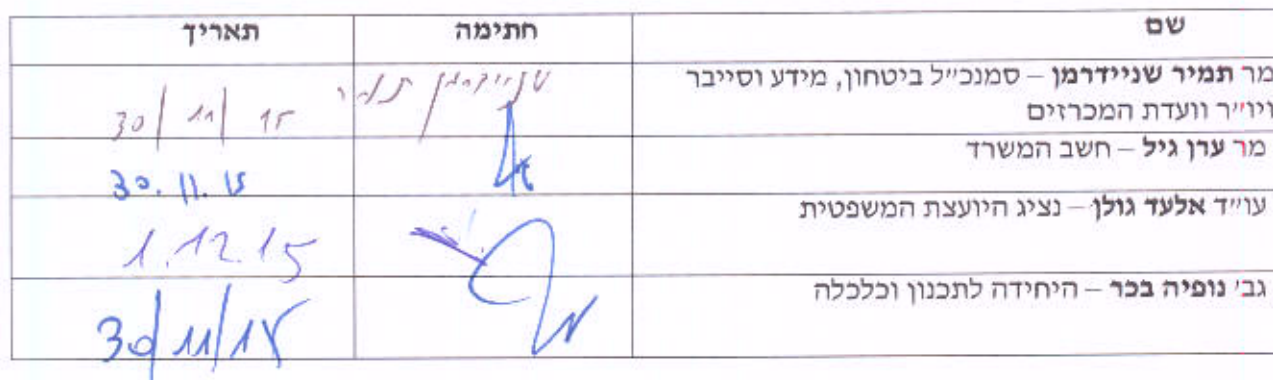 שם חתימה תאריך
מר תמיר שניידרמן – סמנכ״ל ביטחון, מידע וסייבר שניידרמן תמיר 30/11/15
ויו״ר וועדת המכרזים
מר ערן גיל – חשב המשרד 30.11.15
עו״ד אלעד גולן – נציג היועצת המשפטית 1.12.15
גב׳ נופיה בכר – היחידה לתכנון וכלכלה 30/11/15